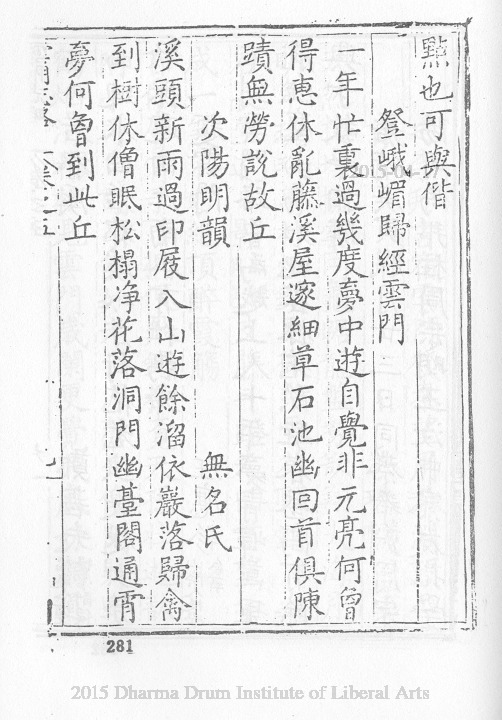 點也可與偕
登峨嵋歸經雲門
一年忙裏過幾度夢中遊自覺非元亮何曾
得惠休亂藤溪屋邃細草石池幽回首俱陳
蹟無勞說故丘
次陽明韻 無名氏
溪頭新雨過印屐入山遊餘溜依巖落歸禽
到樹休僧眠松榻净花落洞門幽臺閣通霄
夢何曾到此丘
281
2015 Dharma Drum Institute of Liberal Arts